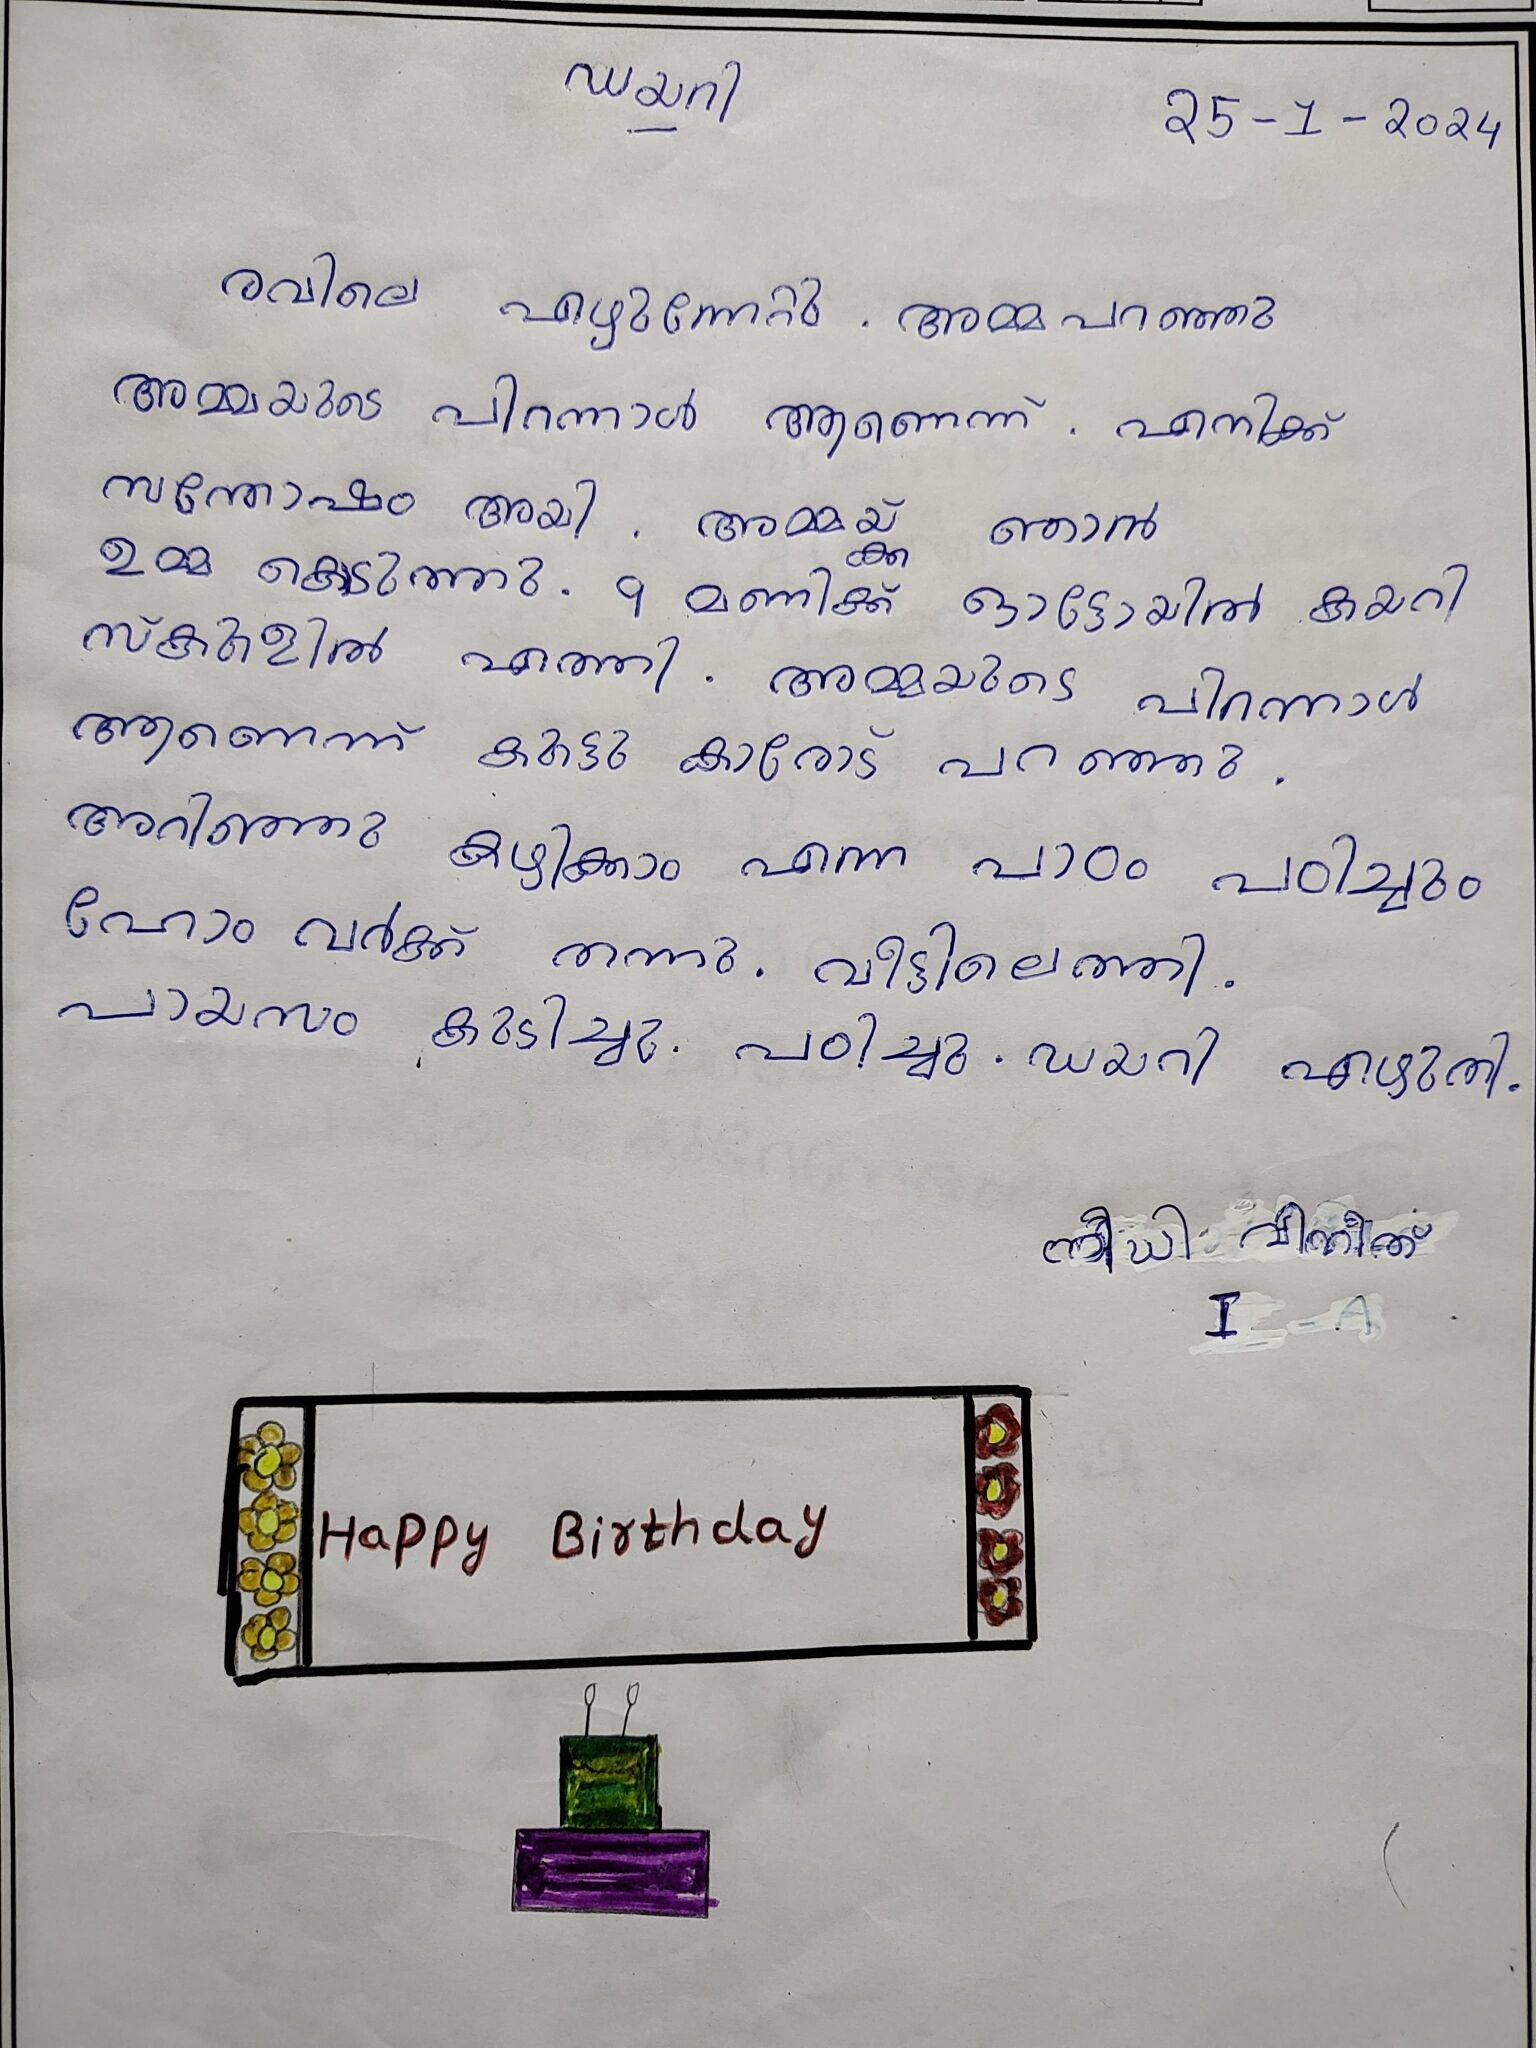 ഡയറി
25-1-2024
രവിലെ എഴുന്നേറ്റു. അമ്മ പറഞ്ഞു
അമ്മയുടെ പിറന്നാൾ ആണെന്ന്. എനിക്ക്
സന്തോഷം അയി. അമ്മയ്ക്ക് ഞാൻ
ഉമ്മ കൊടുത്തു. 9 മണിക്ക് ഓട്ടോയിൽ കയറി
സ്കൂളിൽ എത്തി. അമ്മയുടെ പിറന്നാൾ
ആണെന്ന് കൂട്ടുകാരോട് പറഞ്ഞു.
അറിഞ്ഞു കഴിക്കാം എന്ന പാഠം പഠിച്ചും
ഹോം വർക്ക് തന്നു. വീട്ടിലെത്തി.
പായസം കുടിച്ചു. പഠിച്ചു. ഡയറി എഴുതി.
നിധി വിനീത്
I - A
Happy Birthday